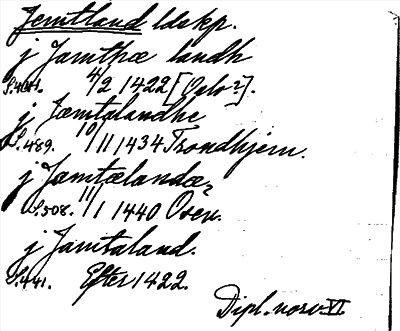 Jemtland ldskp.
j Jamthæ landh
S.404. 4/2 1422 [Oslo?].
j Jæmtalandhe
S.489. 10/11 1434 Trondhjem.
j Jæmtælandæ
S.508. 11/1 1440 Osen.
j Jamtaland.
S.441. Efter 1422.
Dipl. norv. VI.